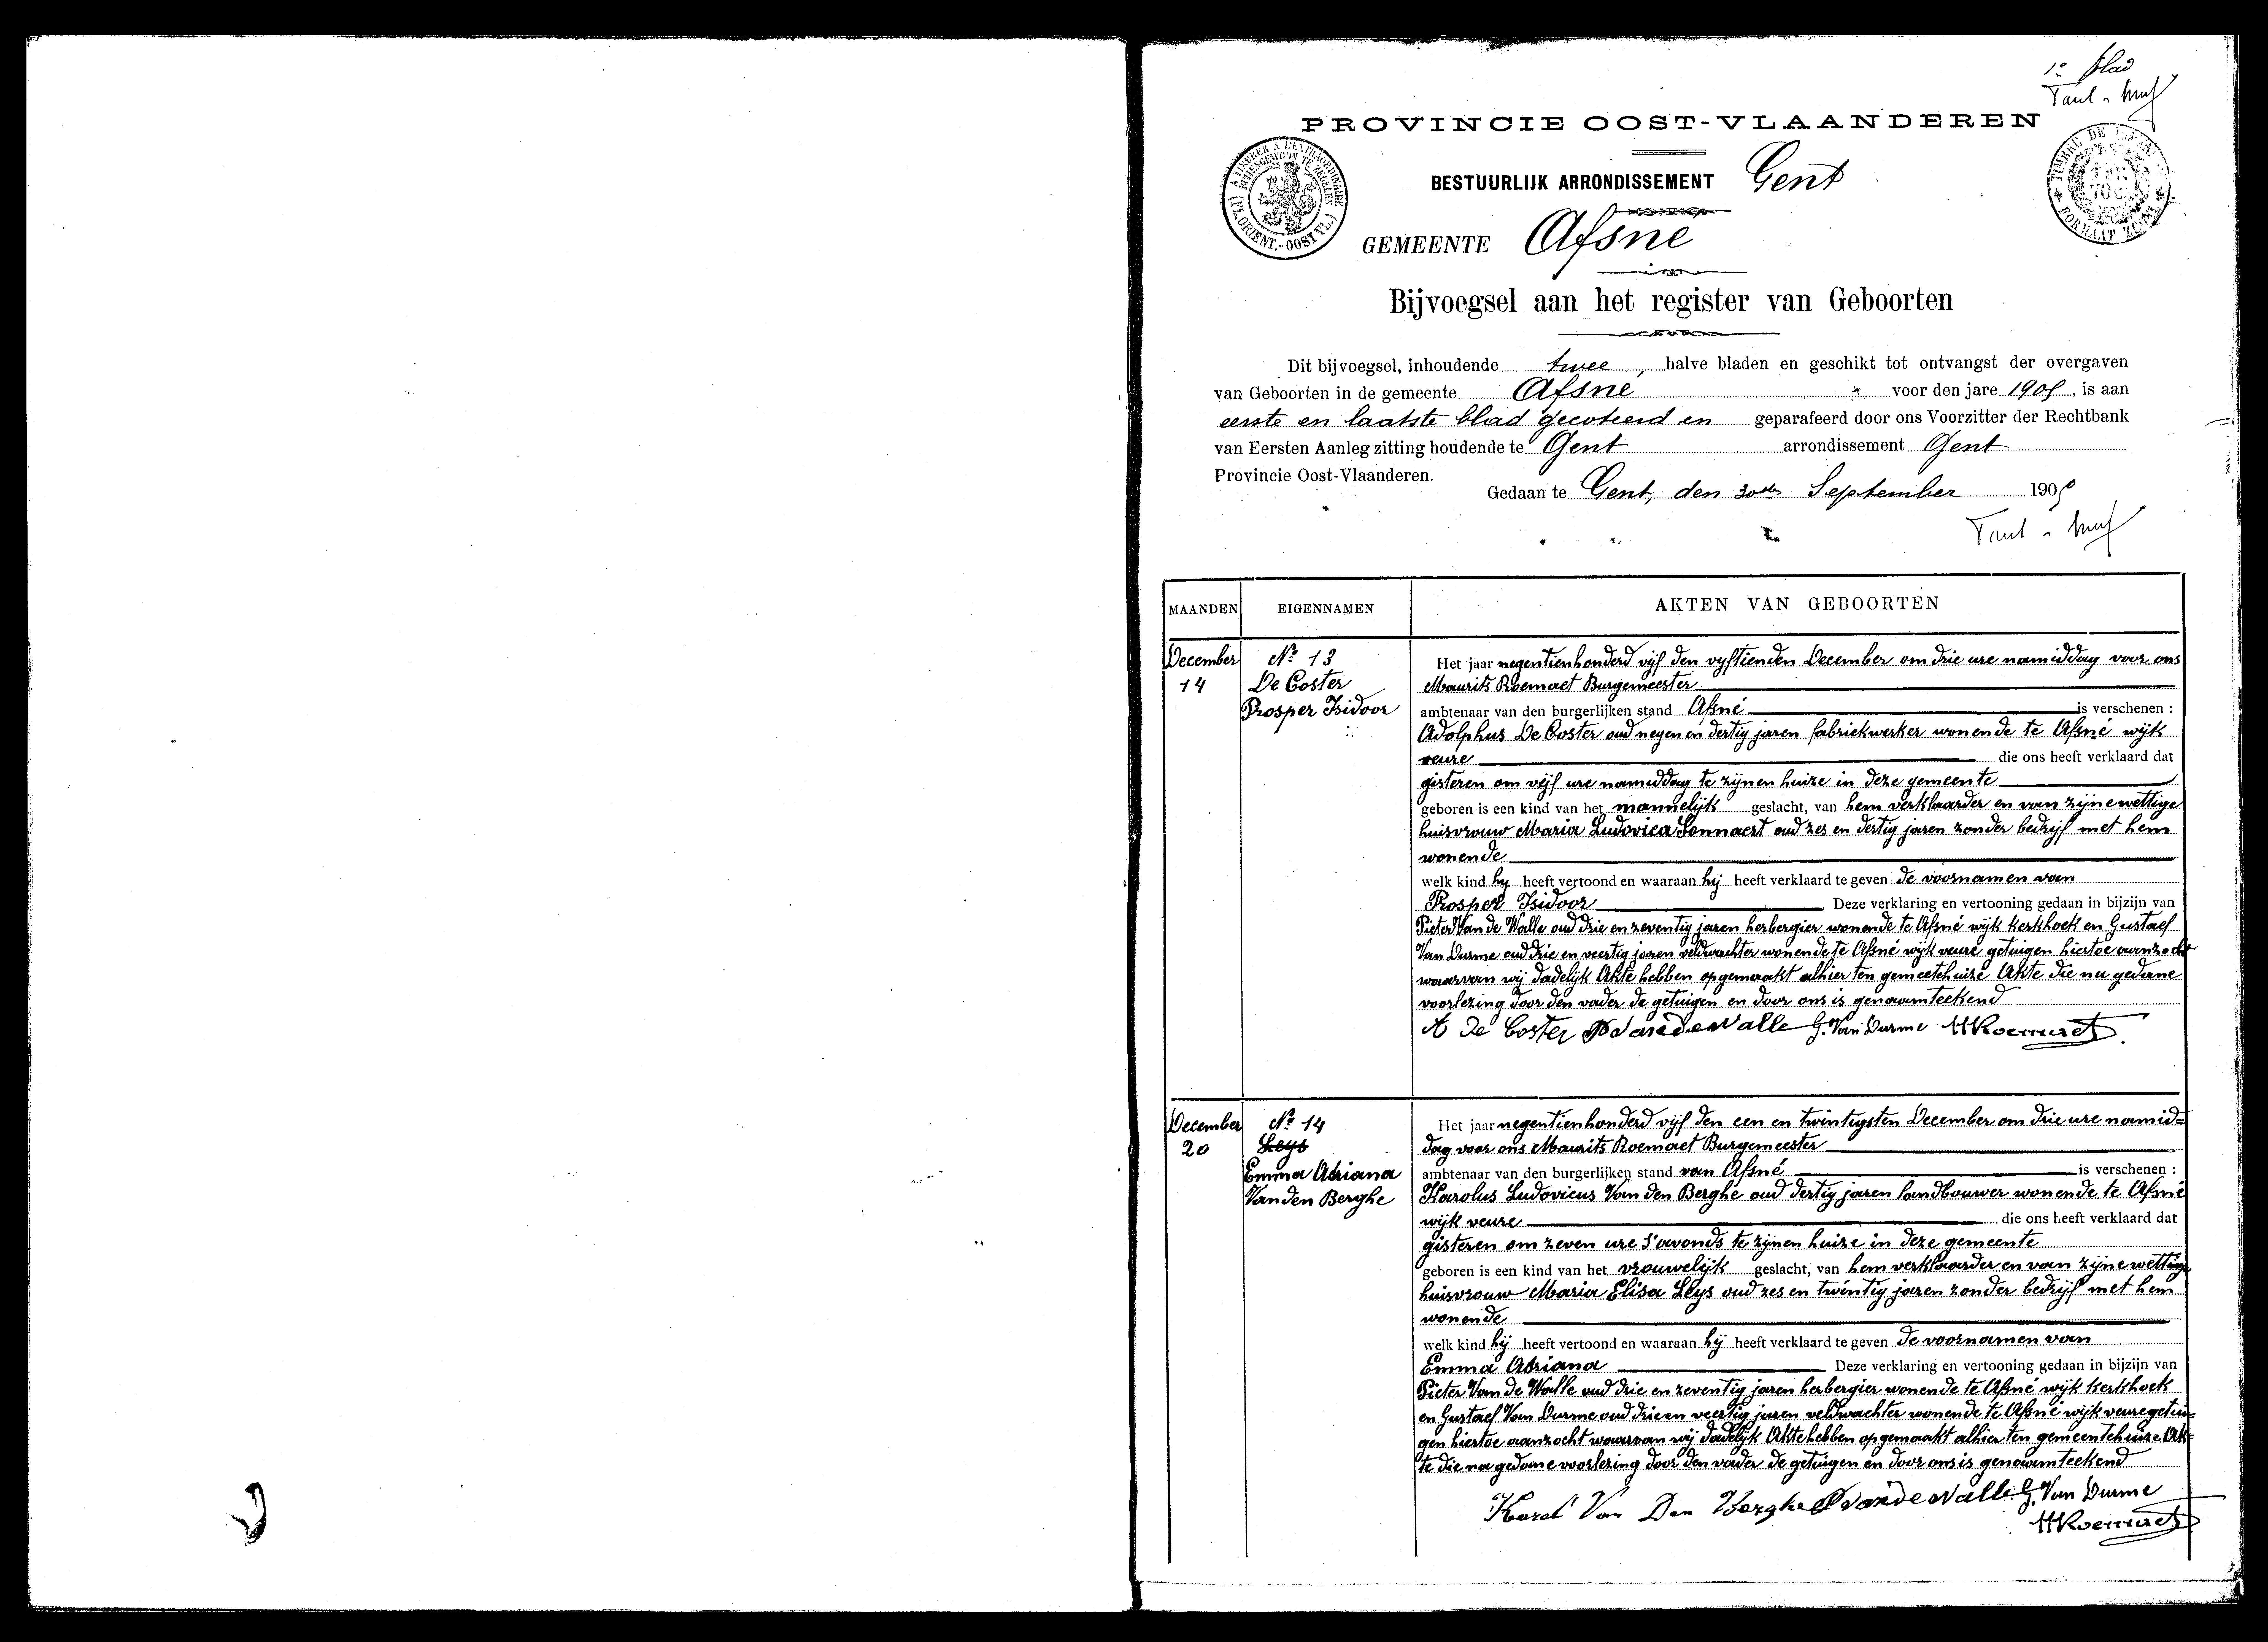 1e blad
PROVINCIE OOST-VLAANDEREN
BESTUURLIJK ARRONDISSEMENT Gent
GEMEENTE Afsné
Bijvoegsel aan het register van Geboorten
Dit bijvoegsel, inhoudende twee, halve bladen en geschikt tot ontvangst der overgaven
van Geboorten in de gemeente Afsné voor den jare 1905, is aan
eerste en laatste blad gecoteerd en geparafeerd door ons Voorzitter der Rechtbank
van Eersten Aanleg zitting houdende te Gent arrondissement Gent
Provincie Oost-Vlaanderen.
Gedaan te Gent, den 30sten September 1905
MAANDEN EIGENNAMEN AKTEN VAN GEBOORTEN
December
14
No 13
De Coster
Prosper Isidoor
Het jaar negentienhonderd vijf den vyftienden December om drie ure namiddag voor ons
Maurits Roemaet Burgemeester
ambtenaar van den burgerlijken stand Afsné is verschenen :
Adolphus De Coster oud negen en dertig jaren fabriekwerker wonende te Afsné wijk
veure die ons heeft verklaard dat
gisteren om vijf ure namiddag te zijnen huize in deze gemeente
geboren is een kind van het mannelijk geslacht, van hem verklaarder en van zijne wettige
huisvrouw Maria Ludovica Sonnaert oud zes en dertig jaren zonder bedrijf met hem
wonende
welk kind hy heeft vertoond en waaraan hij heeft verklaard te geven de voornamen van
Prosper Isidoor Deze verklaring en vertooning gedaan in bijzijn van
Pieter Van de Walle oud drie en zeventig jaren herbergier wonende te Afsné wijk kerkhoek en Gustaef
Van Durme oud drie en veertig jaren veldwachter wonende te Afsné wijk veure getuigen hiertoe aanzocht
waarvan wij dadelijk Akte hebben opgemaakt alhier ten gemeetehuize Akte die na gedane
voorlezing door den vader de getuigen en door ons is genaamteekend
A De Coster P Vandewalle G. Van Durme M Roemaet
December
20
No 14
Leys
Emma Adriana
Van den Berghe
Het jaar negentienhonderd vijf den een en twintigsten December om drie ure namid=
dag voor ons Maurits Roemaet Burgemeester
ambtenaar van den burgerlijken stand van Afsné is verschenen :
Karolus Ludovicus Van den Berghe oud dertig jaren landbouwer wonende te Afsné
wijk veure die ons heeft verklaard dat
gisteren om zeven ure s'avonds te zijnen huize in deze gemeente
geboren is een kind van het vrouwelijk geslacht, van hem verklaarder en van zijne wettige
huisvrouw Maria Elisa Leys oud zes en twintig jaren zonder bedrijf met hem
wonende
welk kind hij heeft vertoond en waaraan hij heeft verklaard te geven de voornamen van
Emma Adriana Deze verklaring en vertooning gedaan in bijzijn van
Pieter Van de Walle oud drie en zeventig jaren herbergier wonende te Afsné wijk kerkhoek
en Gustaef Van Durme oud drie en veertig jaren veldwachter wonende te Afsné wijk veure getui=
gen hiertoe aanzocht waarvan wij dadelijk Akte hebben opgemaakt alhier ten gemeentehuize Ak=
te die na gedane voorlezing door den vader de getuigen en door ons is genaamteekend
Karel Van Den Berghe P Vandewalle G. Van Durme
M Roemaet